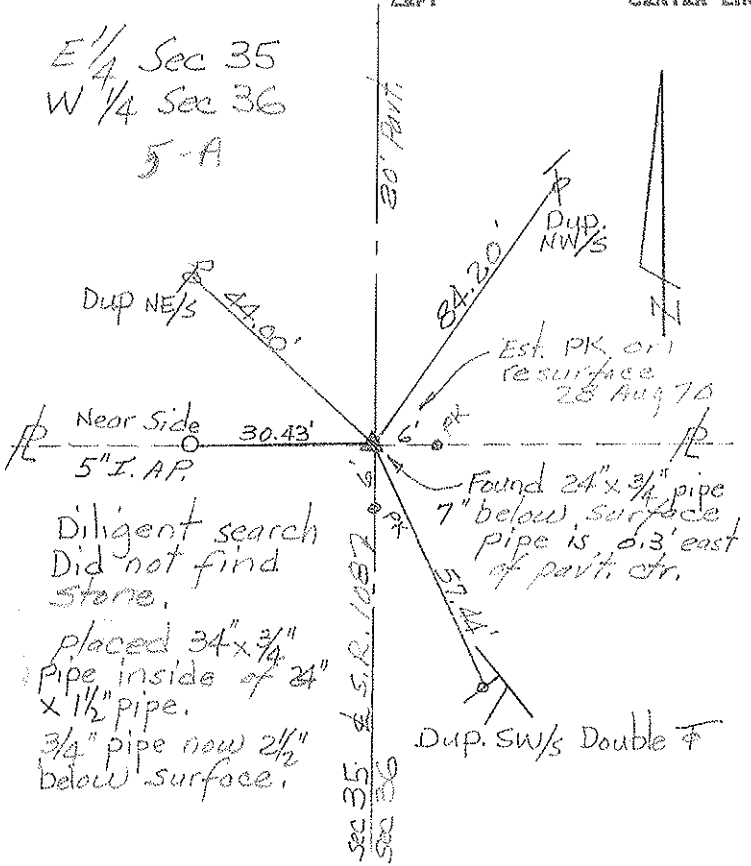 E 1/4 Sec 35
W 1/4 Sec 36
5-A
20' Pavt.
Dup. NW/S
84.20'
Dup NE/S
44.90'
N
Est. PK on resurface
28 Aug 70
Near Side
30.43'
6'
PK
5" I. AP.
6'
PK
Found 24" x 3/4" pipe
7" below surface
pipe is 0.3' east
of pav't. ctr.
Diligent search
Did not find
Stone.
placed 34" x 3/4"
pipe inside of 24"
x 1 1/2" pipe.
3/4" pipe now 2 1/2"
below surface.
57.44'
S.R. 1087
Dup. SW/S Double
Sec 35
Sec 36